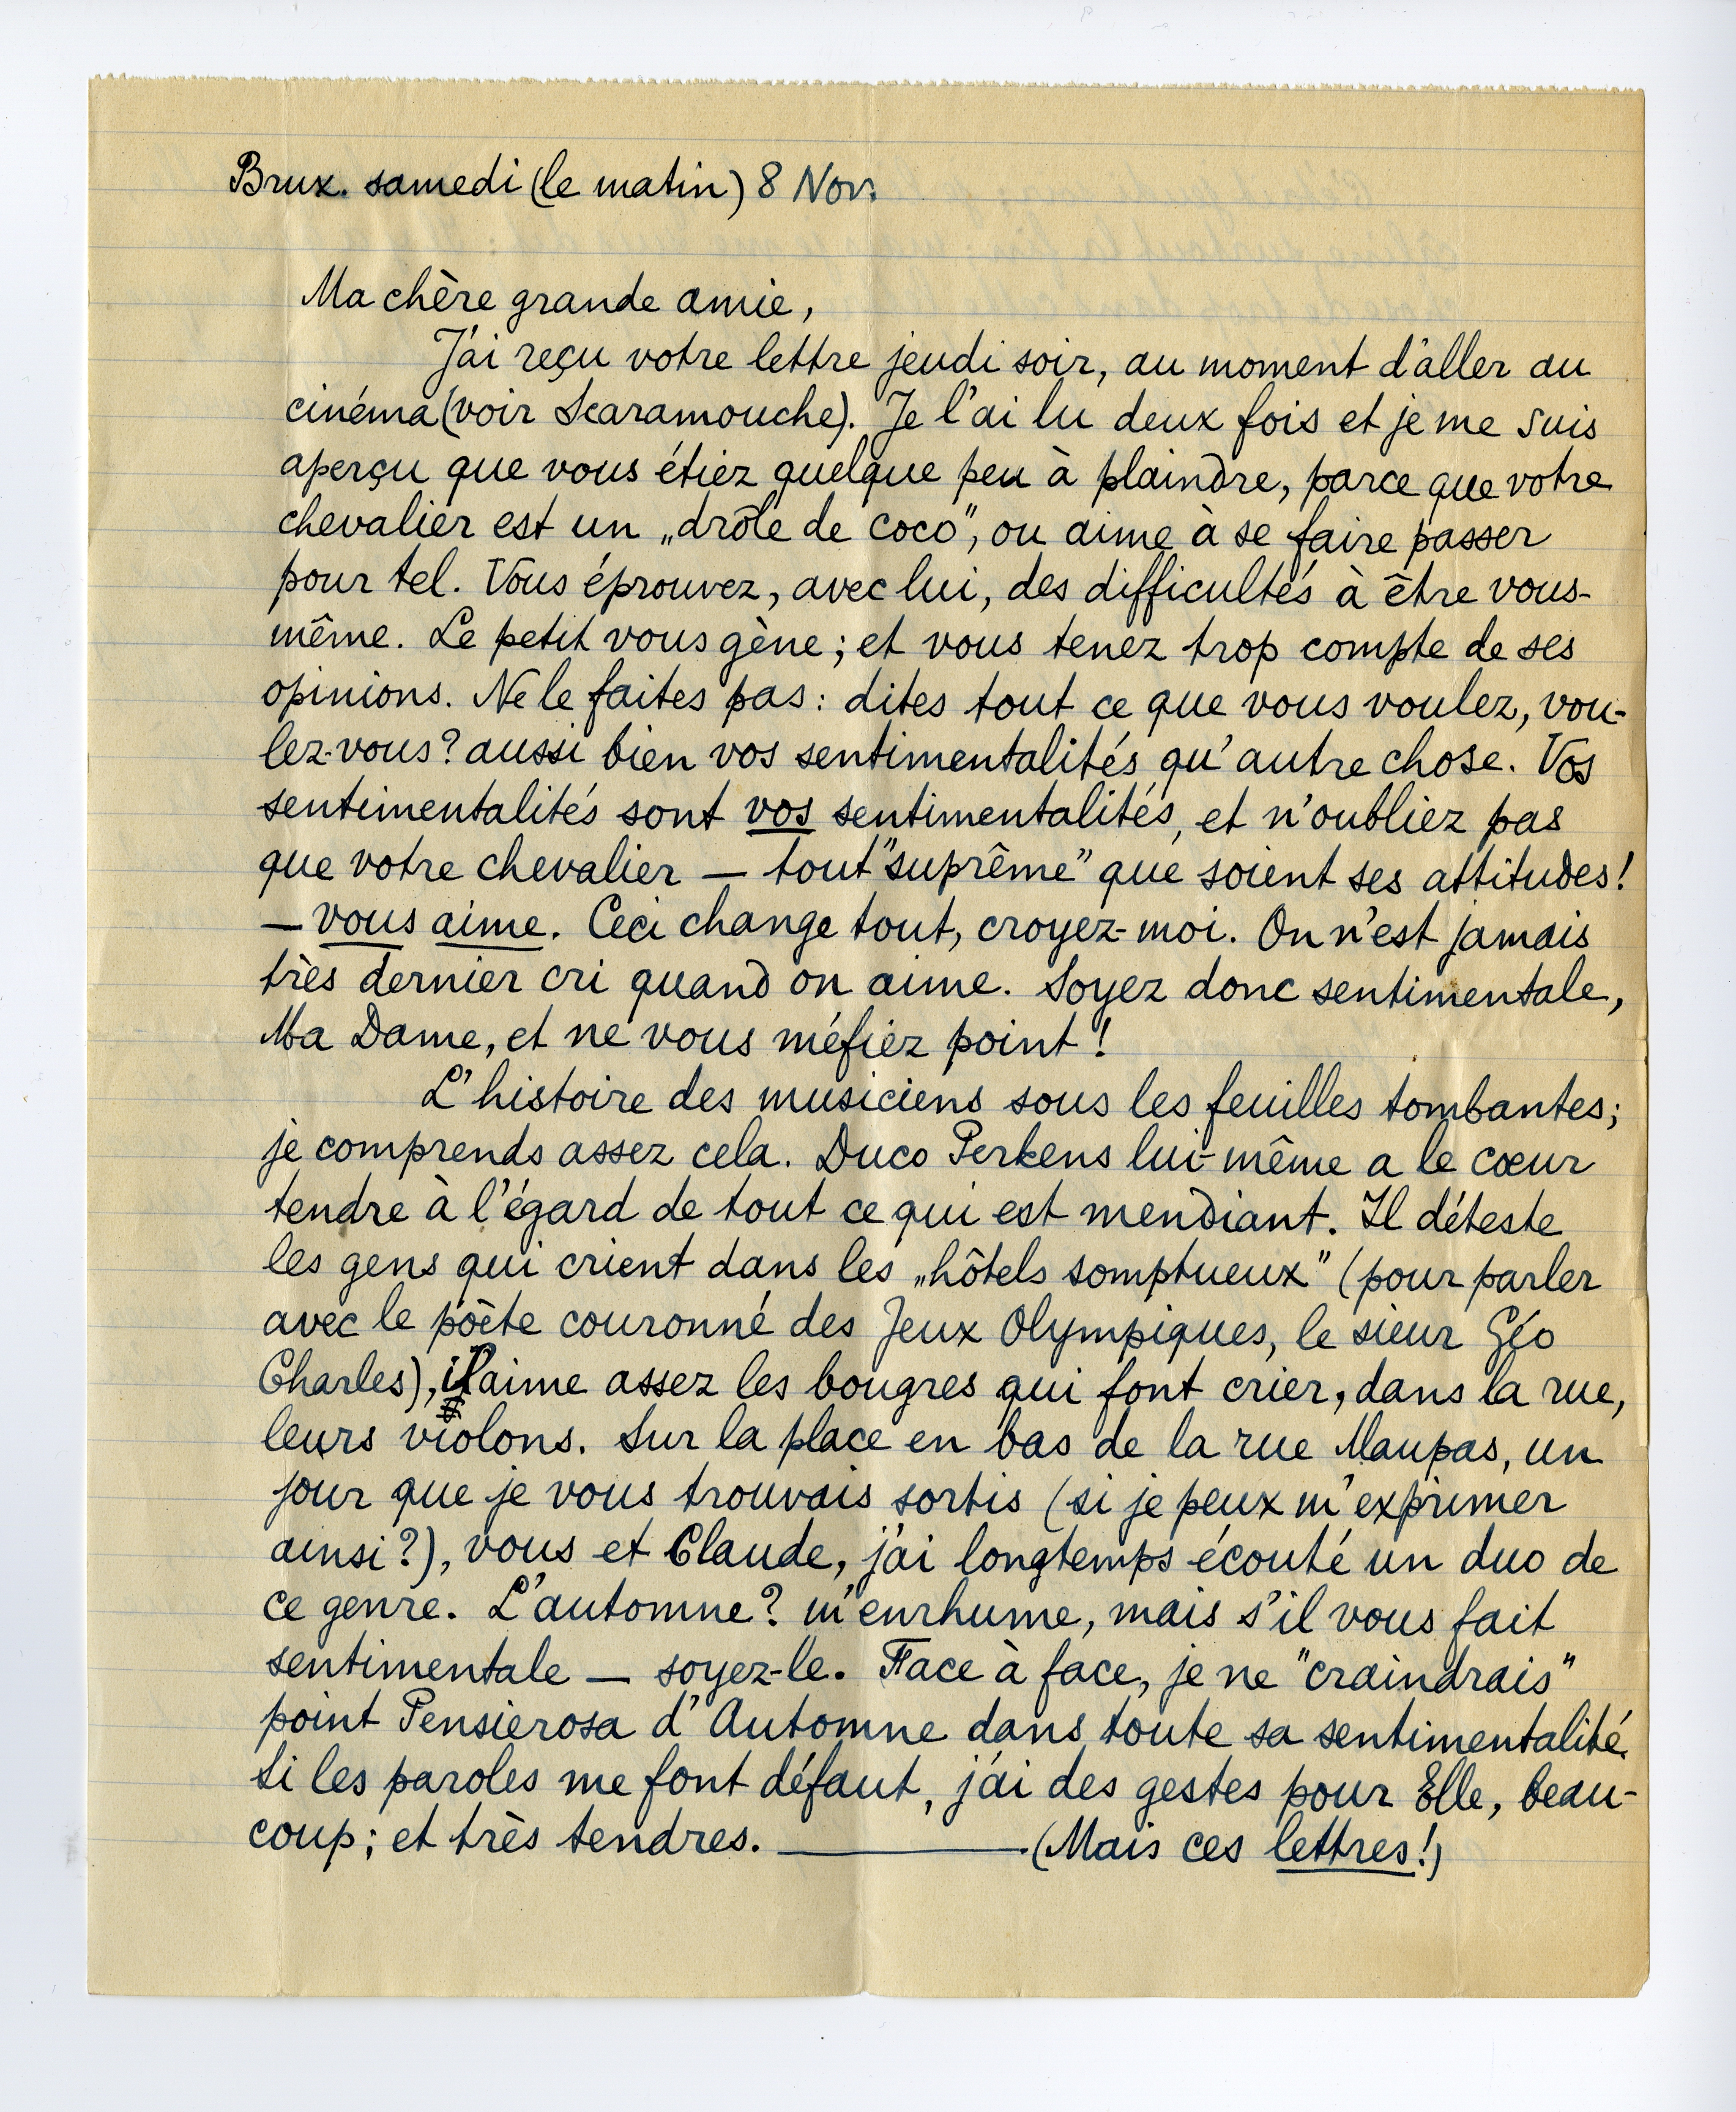 Brux. samedi (le matin) 8 Nov.
Ma chère grande amie,
J'ai reçu votre lettre jeudi soir, au moment d'aller au
cinéma (voir Scaramouche). Je l'ai lu deux fois et je me suis
aperçu que vous étiez quelque peu à plaindre, parce que votre
chevalier est un „drôle de coco”, ou aime à se faire passer
pour tel. Vous éprouvez, avec lui, des difficultés à être vous-
même. Le petit vous gène; et vous tenez trop compte de ses
opinions. Ne le faites pas: dites tout ce que vous voulez, vou-
lez-vous? aussi bien vos sentimentalités qu'autre chose. Vos
sentimentalités sont vos sentimentalités, et n'oubliez pas
que votre chevalier — tout "suprême" que soient ses attitudes!
— vous aime. Ceci change tout, croyez-moi. On n'est jamais
très dernier cri quand on aime. Soyez donc sentimentale,
Ma Dame, et ne vous méfiez point!
L'histoire des musiciens sous les feuilles tombantes;
je comprends assez cela. Duco Perkens lui-même a le cœur
tendre à l'égard de tout ce qui est mendiant. Il déteste
les gens qui crient dans les „hôtels somptueux” (pour parler
avec le poète couronné des Jeux Olympiques, le sieur Géo
Charles), il aime assez les bougres qui font crier, dans la rue,
leurs violons. Sur la place en bas de la rue Maupas, un
jour que je vous trouvais sortis (si je peux m'exprimer
ainsi?), vous et Claude, j'ai longtemps écouté un duo de
ce genre. L'automne? m'enrhume, mais s'il vous fait
sentimentale — soyez-le. Face à face, je ne "craindrais"
point Pensierosa d'Automne dans toute sa sentimentalité.
Si les paroles me font défaut, j'ai des gestes pour Elle, beau-
coup; et très tendres. ———— (Mais ces lettres!)